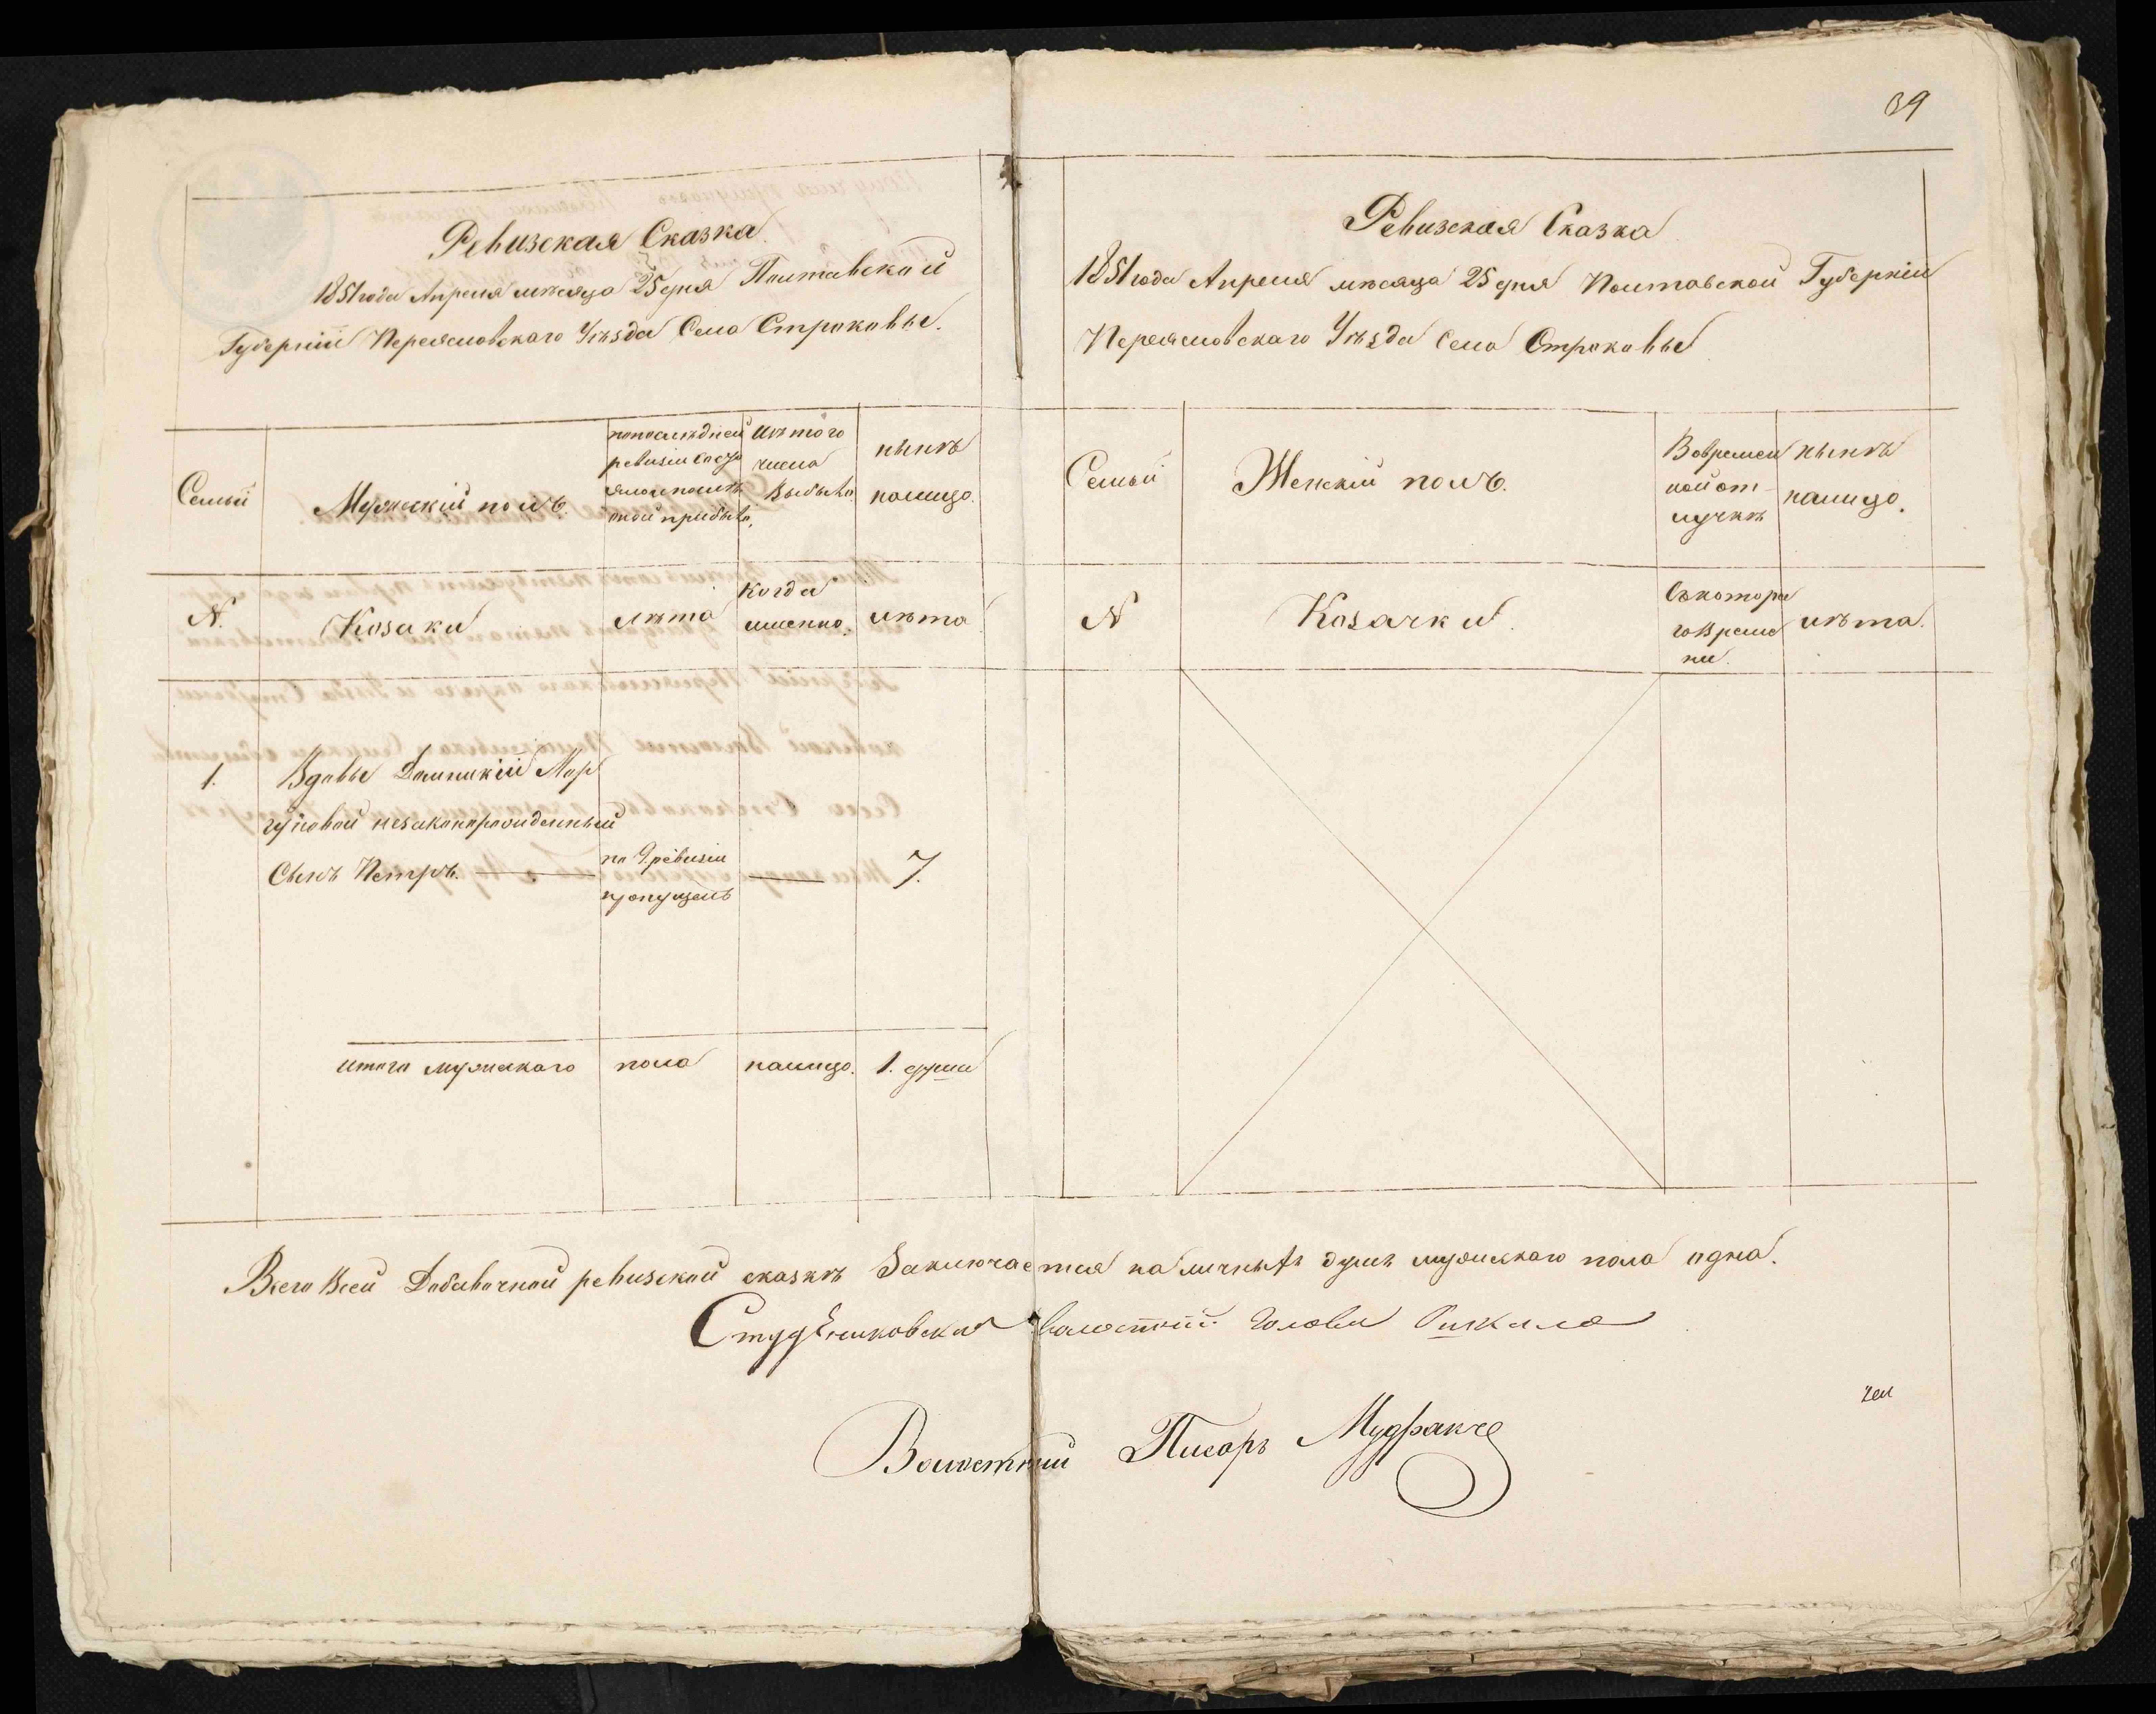 39
Ревизская Сказка
1851 года Апреля месяца 25 дня Полтавской
Губерніи Переясловскаго Уезда Села Строковы.
Семьи
Мужескій полъ.
попоследней
ревизіи состо
яло и после
оной прибыло,
Изтого
числа
выбыло.
ныне
налицо.
N.
Козаки
лета
Когда
именно.
лета
1.
Вдовы Домникіи Мор
гуновой незаконорожденный
Сынъ Петръ.
по 9. ревизіи
пропущенъ
7.
итого мужескаго пола налицо. 1. душа
Ревизская Сказка
1851 года Апреля месяца 25 дня Полтавской Губерніи
Переясловскаго Уезда Села Строковы
Семьи
Женскій полъ.
Вовремен
ной от-
лучке
ныне
налицо.
N
Козачки.
Съкотора
говреме
ни.
лета.
Всего Всей Добавочной ревизской сказке Заключается наличныхъ душъ мужескаго пола одна.
волостній Голова
Волостный Писарь